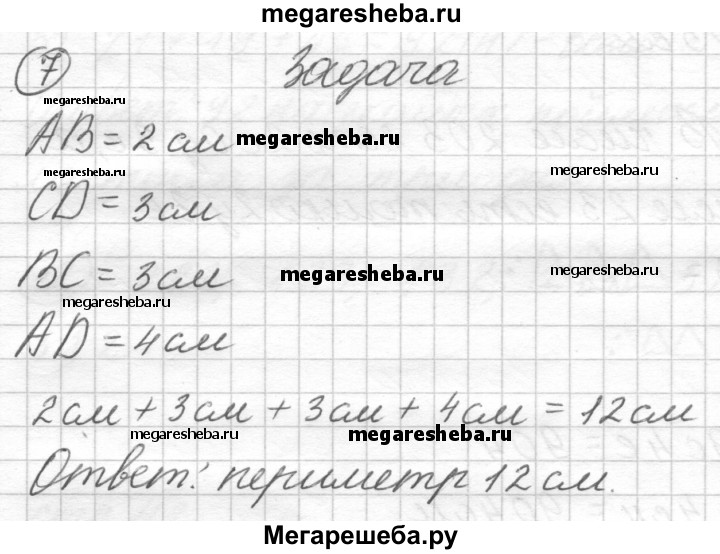 megaresheba.ru
7 Задача
megaresheba.ru
AB = 2 см megaresheba.ru
megaresheba.ru
CD = 3 см
BC = 3 см megaresheba.ru megaresheba.ru
megaresheba.ru
AD = 4 см
2 см + 3 см + 3 см + 4 см = 12 см
megaresheba.ru megaresheba.ru
Ответ: периметр 12 см.
Мегарешеба.ру